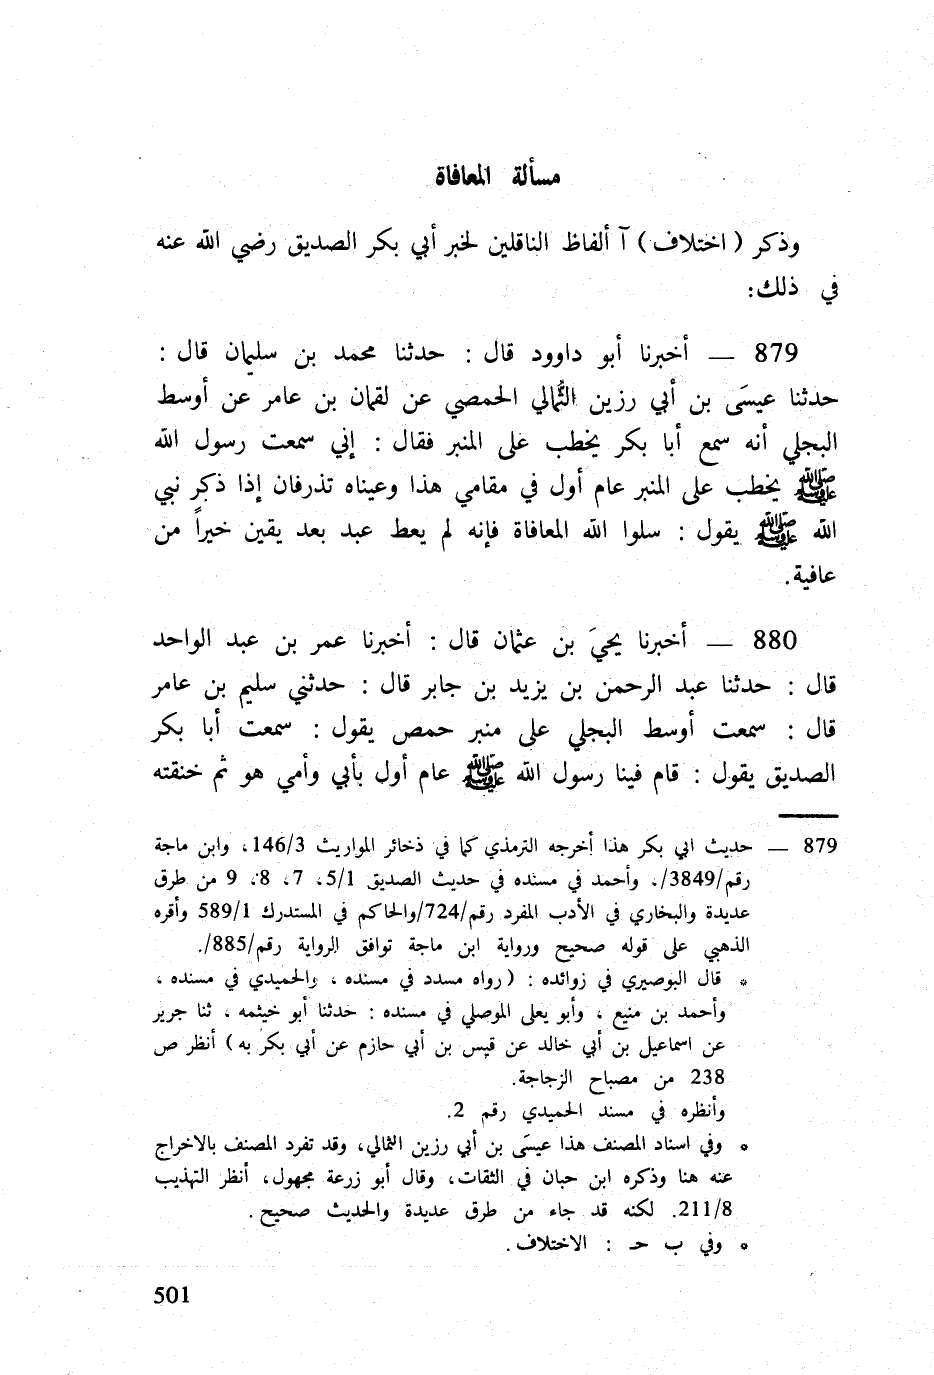 مسألة المعافاة
وذكر ( اختلاف ) آ ألفاظ الناقلين لخبر أبي بكر الصديق رضي الله عنه
في ذلك:
879 — أخبرنا أبو داوود قال : حدثنا محمد بن سليمان قال :
حدثنا عيسَى بن أبي رزين الثُّمالي الحمصي عن لقمان بن عامر عن أوسط
البجلي أنه سمع أبا بكر يخطب على المنبر فقال : إني سمعت رسول الله
ﷺ يخطب على المنبر عام أول في مقامي هذا وعيناه تذرفان إذا ذكر نبي
الله ﷺ يقول : سلوا الله المعافاة فإنه لم يعط عبد بعد يقين خيراً من
عافية.
880 — أخبرنا يحيَ بن عثمان قال : أخبرنا عمر بن عبد الواحد
قال : حدثنا عبد الرحمن بن يزيد بن جابر قال : حدثني سليم بن عامر
قال : سمعت أوسط البجلي على منبر حمص يقول : سمعت أبا بكر
الصديق يقول : قام فينا رسول الله ﷺ عام أول بأبي وأمي هو ثم خنقته
879 — حديث ابي بكر هذا أخرجه الترمذي كما في ذخائر المواريث 146/3، وابن ماجة
رقم/3849/، وأحمد في مسنده في حديث الصديق 5/1، 7، 8، 9 من طرق
عديدة والبخاري في الأدب المفرد رقم/724/والحاكم في المستدرك 589/1 وأقره
الذهبي على قوله صحيح ورواية ابن ماجة توافق الرواية رقم/885/.
* قال البوصيري في زوائده : ( رواه مسدد في مسنده ، والحميدي في مسنده ،
وأحمد بن منيع ، وأبو يعلى الموصلي في مسنده : حدثنا أبو خيثمه ، ثنا جرير
عن اسماعيل بن أبي خالد عن قيس بن أبي حازم عن أبي بكر به ) أنظر ص
238 من مصباح الزجاجة.
وأنظره في مسند الحميدي رقم 2.
* وفي اسناد المصنف هذا عيسَى بن أبي رزين الثمالي، وقد تفرد المصنف بالاخراج
عنه هنا وذكره ابن حبان في الثقات، وقال أبو زرعة مجهول، أنظر التهذيب
211/8. لكنه قد جاء من طرق عديدة والحديث صحيح .
* وفي ب حـ : الاختلاف .
501